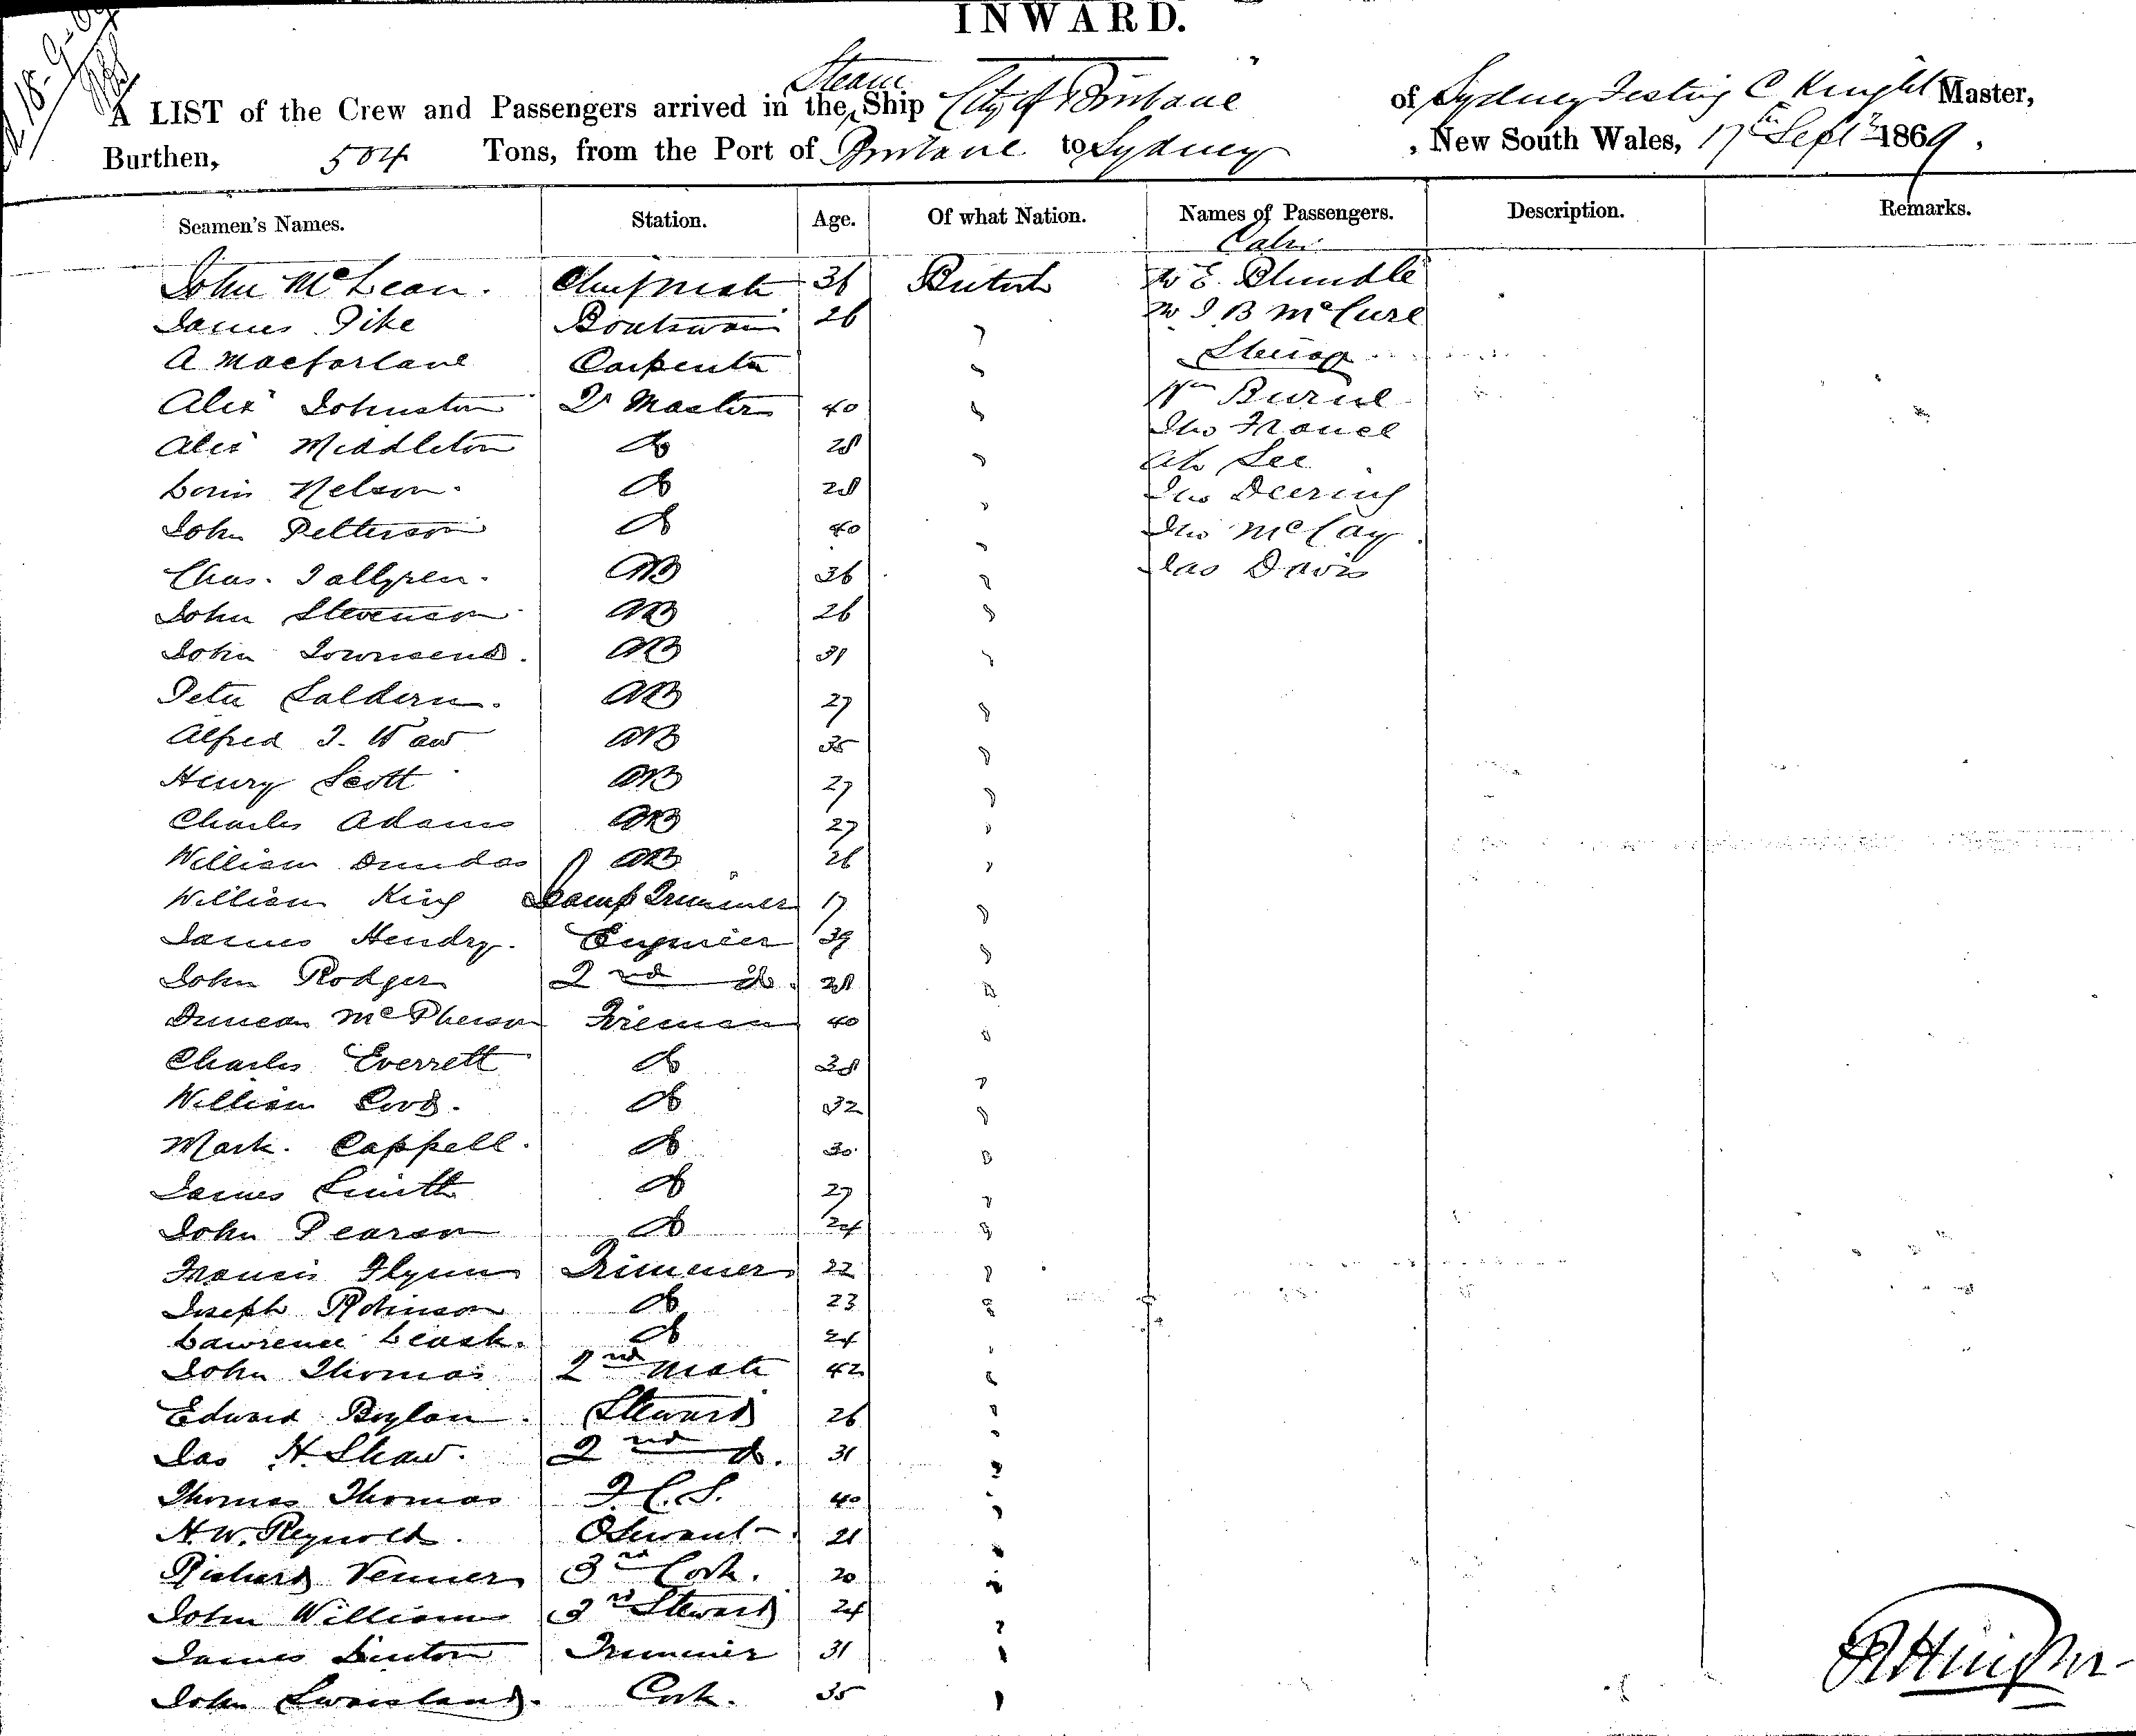 INWARD.
18-9-69
A LIST of the Crew and Passengers arrived in the Steam Ship City of Brisbane of Sydney C Knight Master,
Burthen, 504 Tons, from the Port of Brisbane to Sydney, New South Wales, 17th Sept 1869.
Seamen's Names. Station. Age. Of what Nation. Names of Passengers. Description. Remarks.
Cabin
John McLean. Chief Mate 36 British Mr E. Blundle
James Pike Boatswain 26 " Mr J B McCure
A Macfarlane Carpenter " Steerage
Alex Johnston Qr Master 40 " Wm
Alex Middleton do 28 " Jno
Nelson. do 28 " Ah Lee
John Petterson do 40 " Jno Deering
Chas. AB 36 " Jno McCay
John Stevenson AB 26 " Jas Davis
John Townsend. AB 31 "
Peter AB 27 "
Alfred J. Waw AB 35 "
Henry Scott AB 27 "
Charles Adams AB 27 "
William Dundas AB 26 "
William King Lamp Trimmer 17 "
James Hendry. Engineer 39 "
John Rodger 2nd do. 28 "
Duncan McPherson Fireman 40 "
Charles Everrett do 38 "
William do 32 "
Mark. Cappell. do 30 "
James Smith do 27 "
John Pearson do 24 "
Francis Flynn Trimmer 22 "
Joseph Robinson do 23 "
Lawrence Leask. do 24 "
John Thomas 2nd Mate 42 "
Edward Boylan. Steward 26 "
Jas H. Shaw. 2nd do. 31 "
Thomas Thomas F.C.S. 40 "
H. W. Reynold. 21 "
Richard Venner 3rd Cook. 20 "
John Williams 3rd Steward 24 "
James Linton Trimmer 31 "
John Cook. 35 "